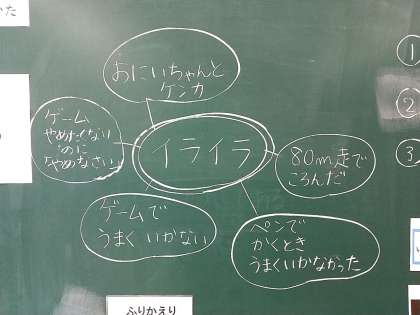 かた
おにいちゃんと
ケンカ
ゲーム
やめたくない
のに
やめなさい
イライラ
80m走で
ころんだ
ゲームで
うまくいかない
ペンで
かくとき
うまくいかなかった
①
②
③
ふりかえり